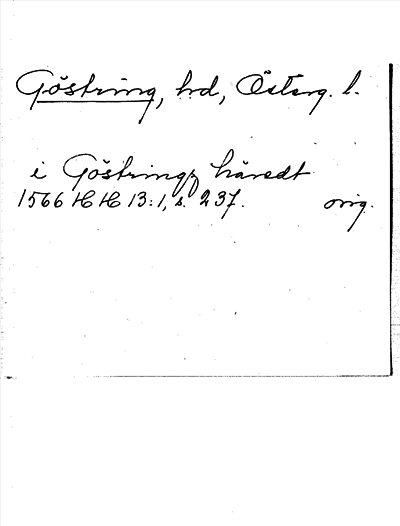 Göstring, hd, Österg. l.
i Göstringz häredt
1566 HH 13:1, s. 237. orig.